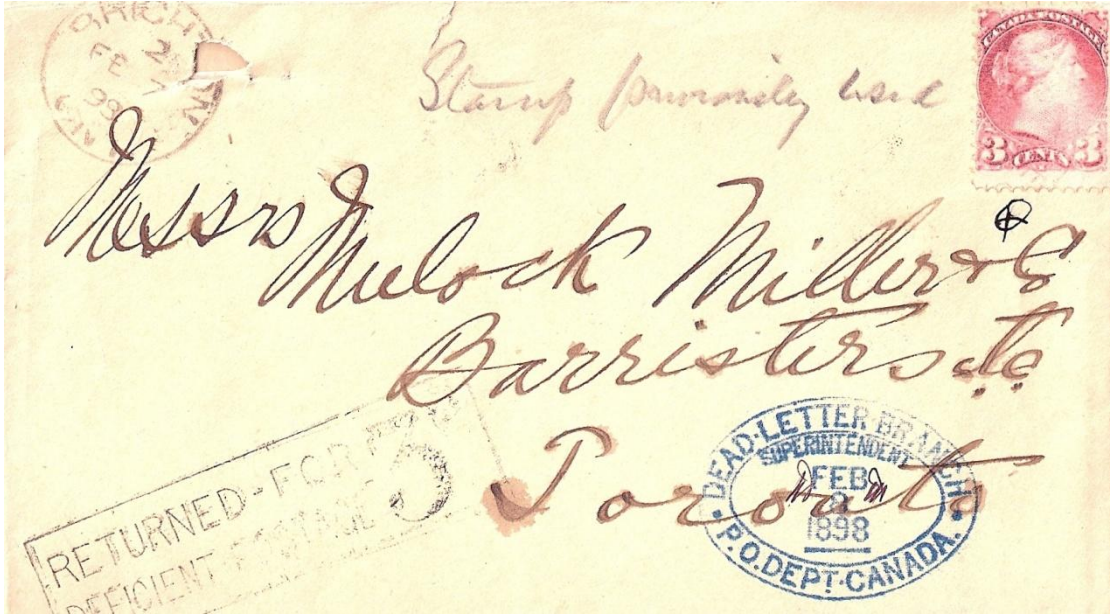 FE
98
Stamp previously used
CANADA POSTAGE
3 CENTS 3
Messrs
Mulock Miller & Co
Barristers &c
Toronto
RETURNED-FOR
DEFICIENT POSTAGE
3
DEAD-LETTER BRANCH
SUPERINTENDENT
FEB
2
1898
P.O. DEPT. CANADA.